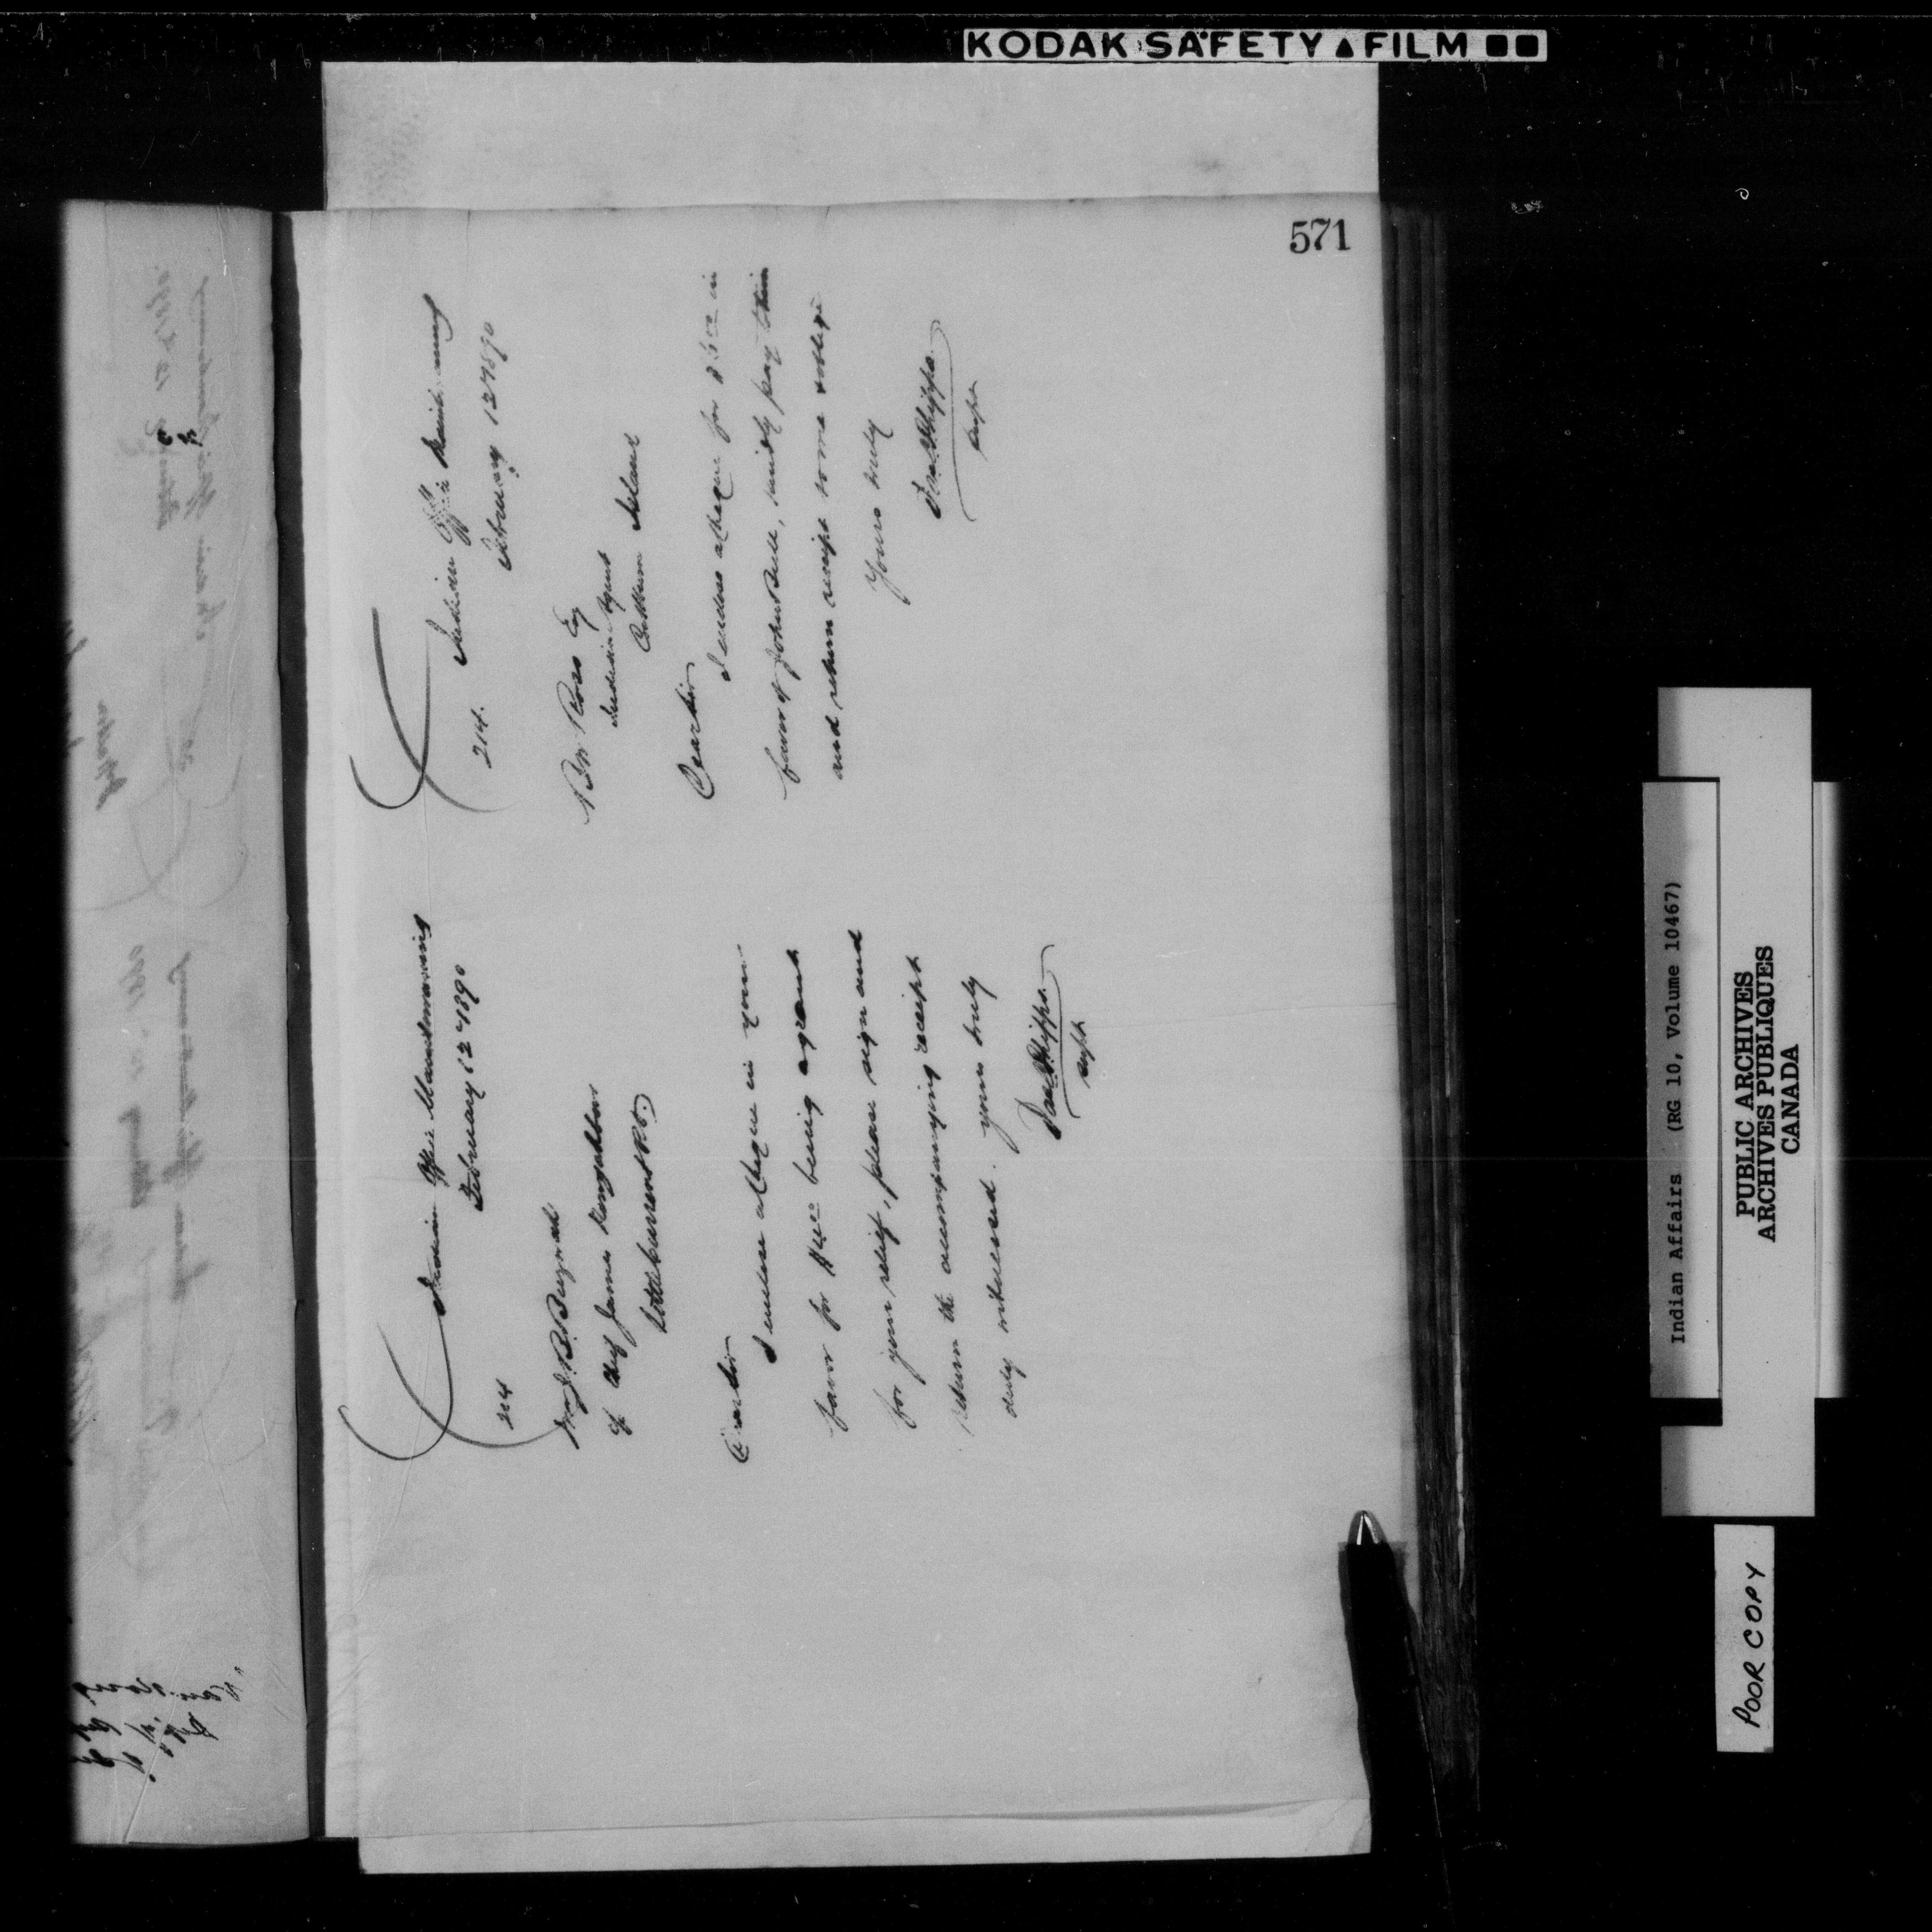 KODAK SAFETY FILM
571
Indian Office Manitowaning
February 12 1890
214
Mr J. B.
of Chief James
Littlecurrent P.O.
Dear Sir
I enclose cheque in your
favor for $4.00 being a grant
for your relief, please sign and
return the accompanying receipt
duly witnessed. yours truly
Jas. C. Phipps.
Supt
Indian Office
February 12 1890
214.
B W Ross Esq
Indian Agent
Cockburn Island
Dear Sir
I enclose cheque for in
favor of John Bull, kindly pay to him
and return receipt to me & oblige
Yours truly
Jas. C. Phipps.
Supt
Indian Affairs (RG 10, Volume 10467)
PUBLIC ARCHIVES
ARCHIVES PUBLIQUES
CANADA
POOR COPY